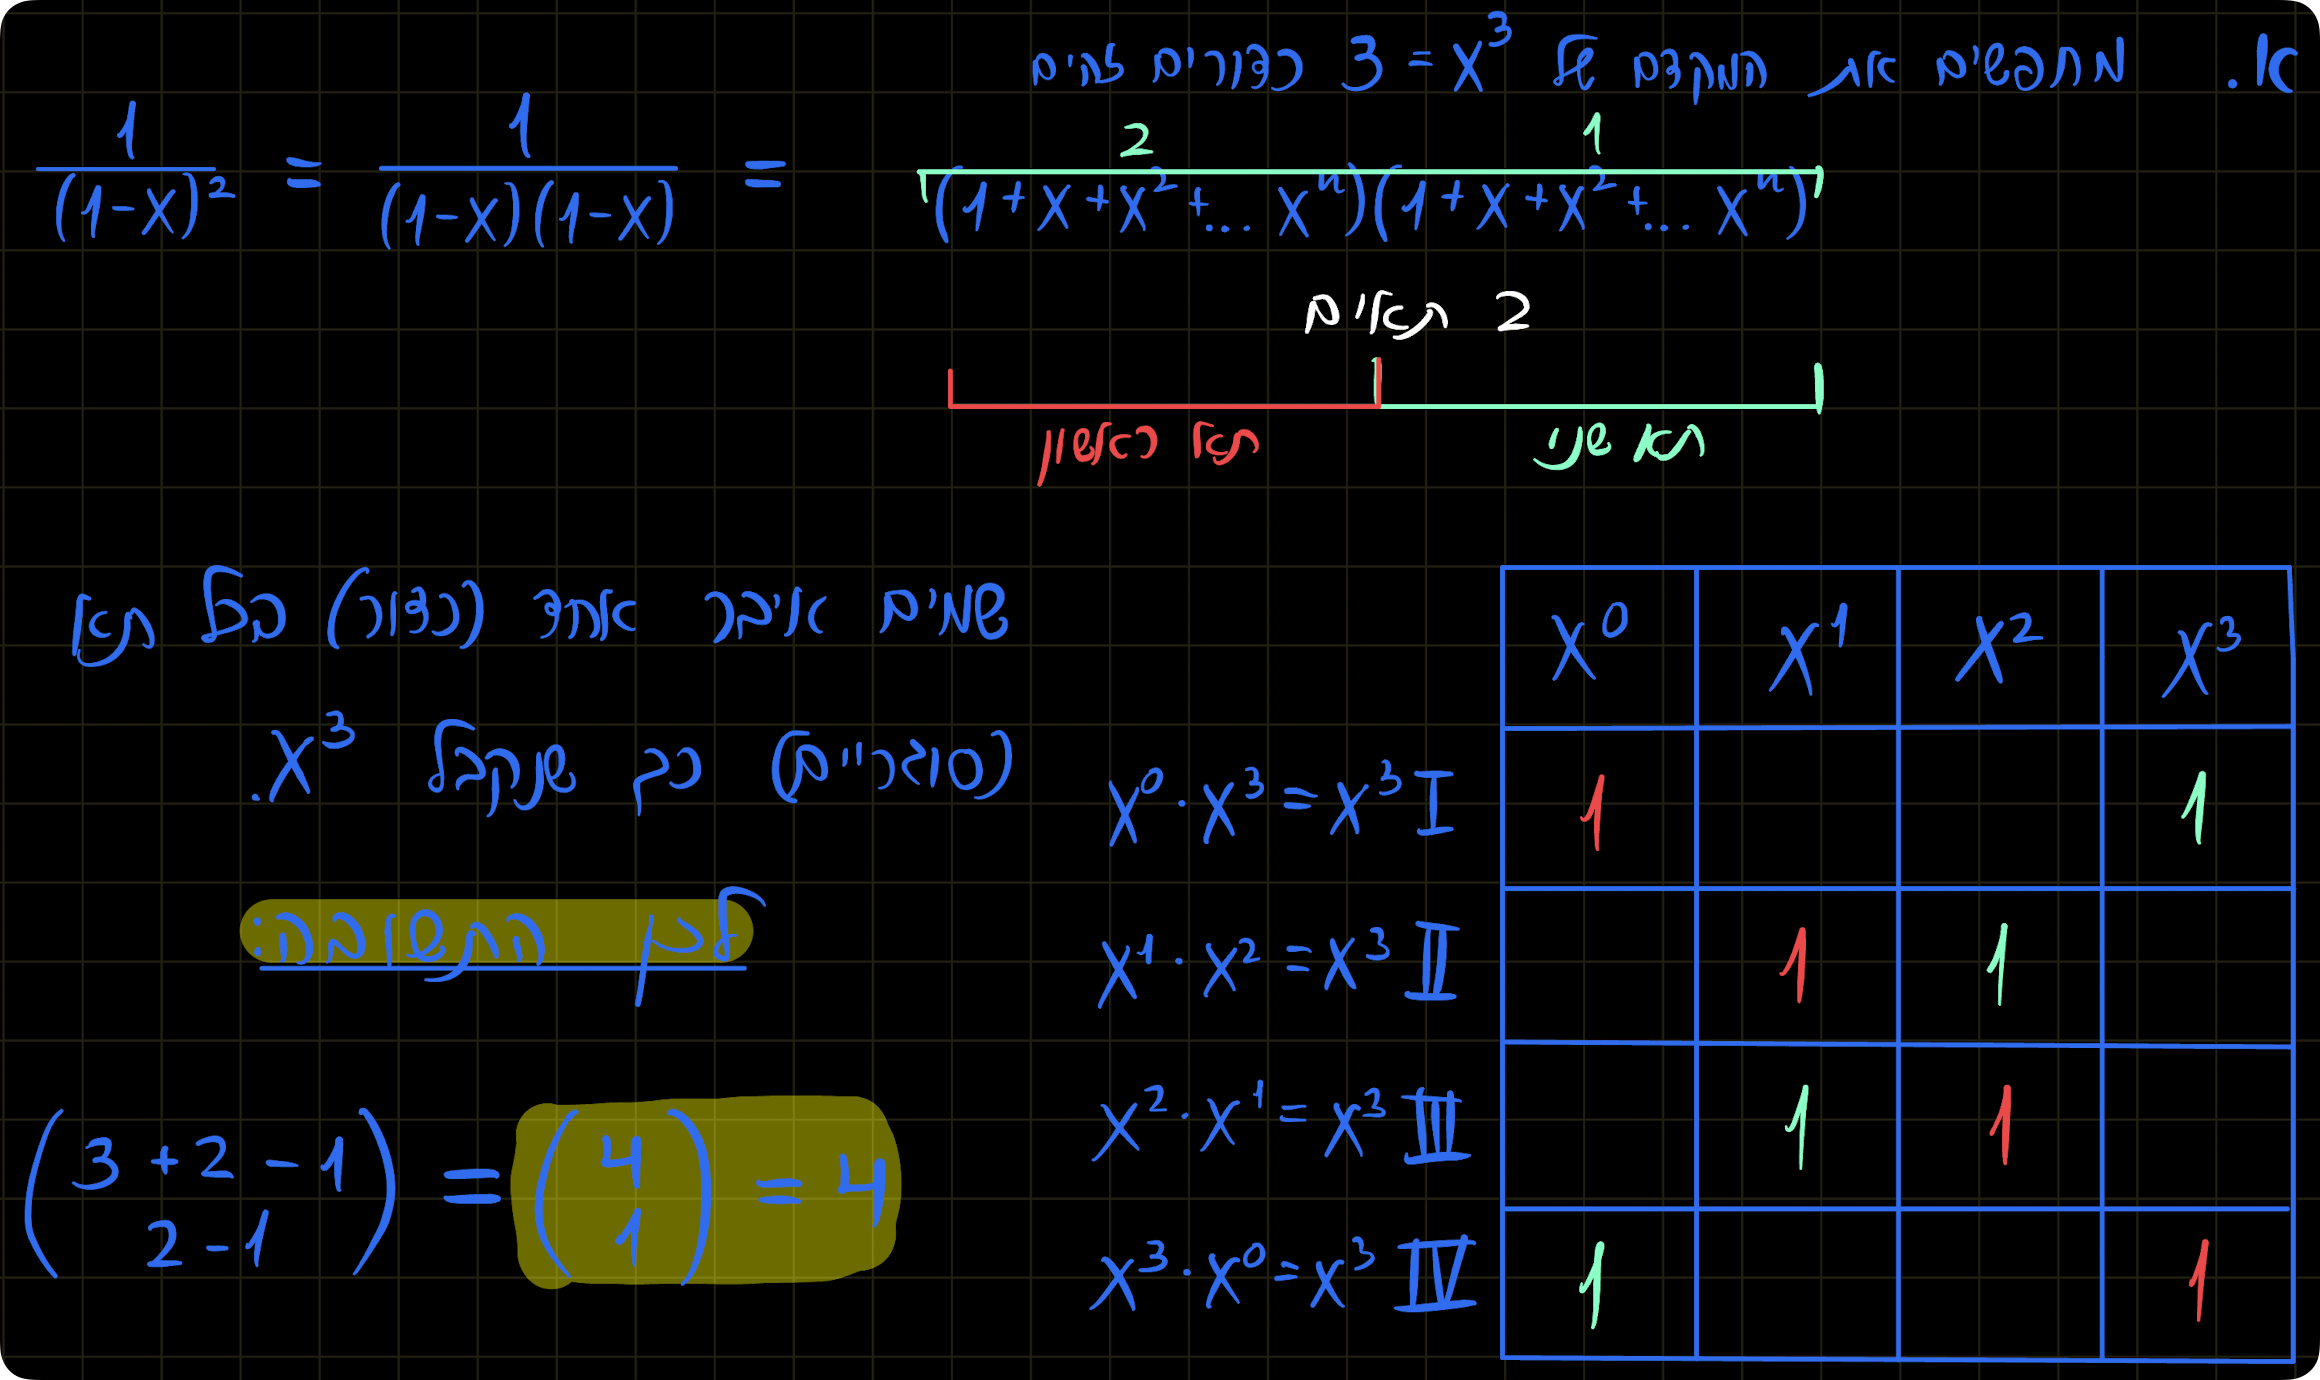 א. מחפשים את המקדם של X³ = 3 כדורים זהים
1/(1-X)² = 1/(1-X)(1-X) =
2 1
(1+X+X²+... Xⁿ)(1+X+X²+... Xⁿ)
2 תאים
תא ראשון תא שני
שמים איבר אחד (כדור) בכל תא
(סוגריים) כך שנקבל X³.
לכן התשובה:
(3+2-1 / 2-1) = (4 / 1) = 4
X⁰ X¹ X² X³
X⁰·X³=X³ I 1 1
X¹·X²=X³ II 1 1
X²·X¹=X³ III 1 1
X³·X⁰=X³ IV 1 1